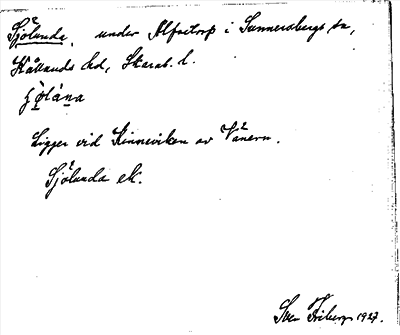 Sjölunda, under Alfvetorp i Sunnersbergs sn,
Kållands hd, Skarab. l.
Ligger vid Kinneviken av Vänern.
Sjölunda ek.
Sven Friberg 1927.